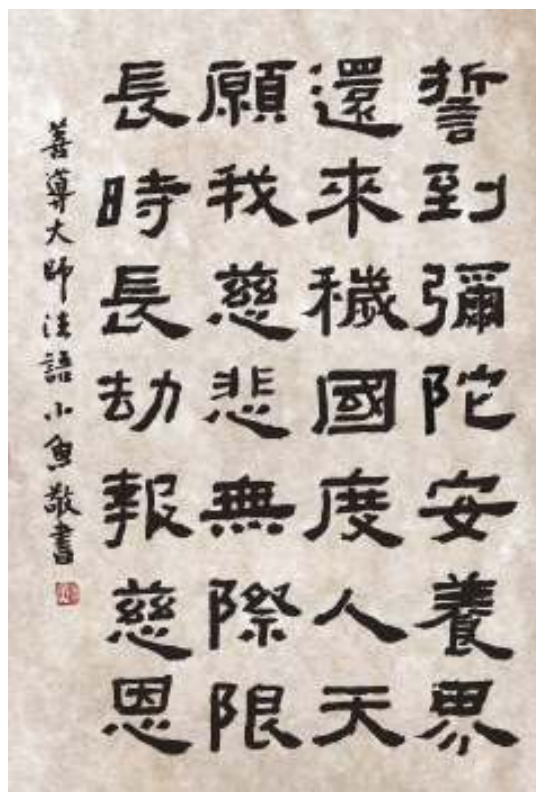 誓到彌陀安養界
還來穢國度人天
願我慈悲無際限
長時長劫報慈恩
善導大師法語小魚敬書